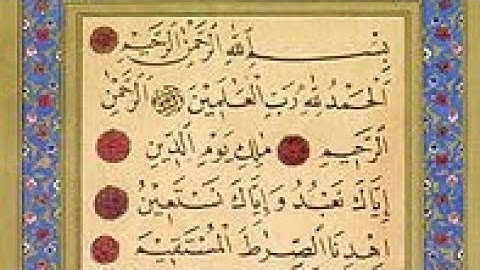 بِسْمِ اللهِ الرَّحْمٰنِ الرَّحِيمِ
اَلْحَمْدُ لِلهِ رَبِّ الْعٰلَمِينَ الرَّحْمٰنِ
الرَّحِيمِ مٰلِكِ يَوْمِ الدِّينِ
اِيَّاكَ نَعْبُدُ وَاِيَّاكَ نَسْتَعِينُ
اِهْدِنَا الصِّرَاطَ الْمُسْتَقِيمَ